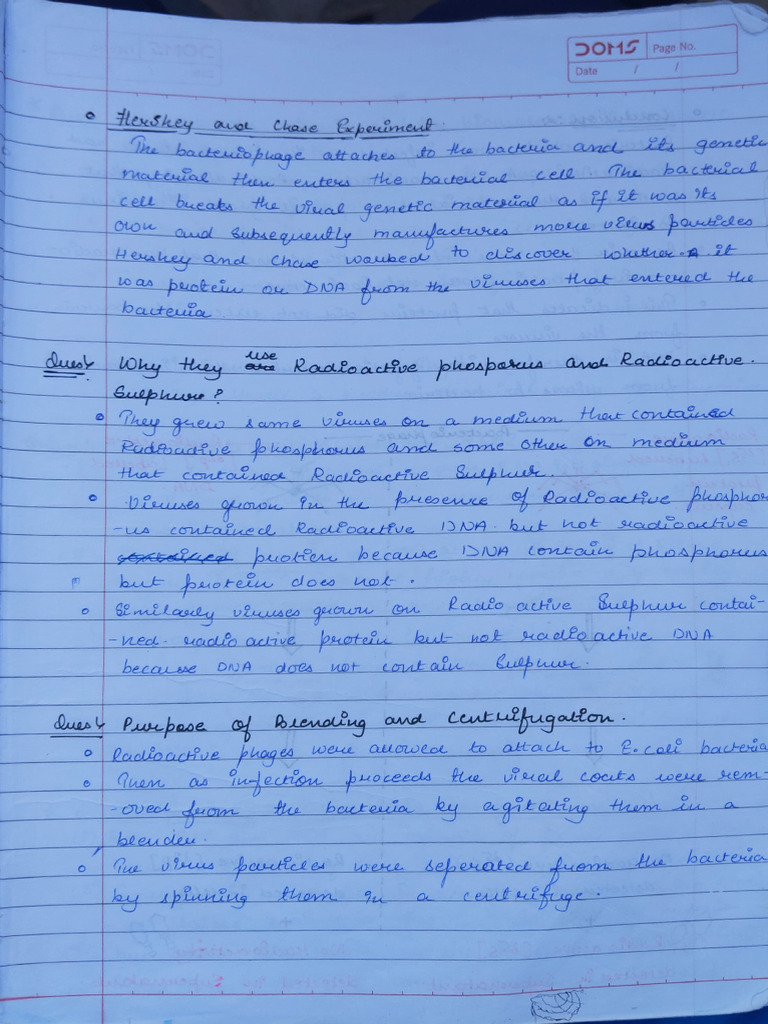 DOMS Page No.
Date / /
Hershey and Chase Experiment.
The bacteriophage attaches to the bacteria and its genetic
material then enters the bacterial cell The bacterial
cell breaks the viral genetic material as if it was its
own and subsequently manufactures more virus particles
Hershey and Chase wanted to discover whether it
was protein or DNA from the viruses that entered the
bacteria
Ques? Why they use Radioactive phosporus and Radioactive.
Sulphur?
They grew some viruses on a medium that contained
Radioactive phosphorus and some other on medium
that contained Radioactive Sulphur.
Viruses grown in the presence of Radioactive phosphor
-us contained Radioactive DNA. but not radioactive
protien because DNA contain phosphorus
but protein does not.
Similarly viruses grown on Radio active Sulphur contai-
-ned. radio active protein but not radioactive DNA
because DNA does not contain Sulphur.
Ques? Purpose of Blending and Centrifugation.
Radioactive phages were allowed to attach to E.coli bacteria
Then as infection proceeds the viral coats were rem-
-oved from the bacteria by agitating them in a
blender.
The virus particles were seperated from the bacteria
by spinning them in a centrifuge.